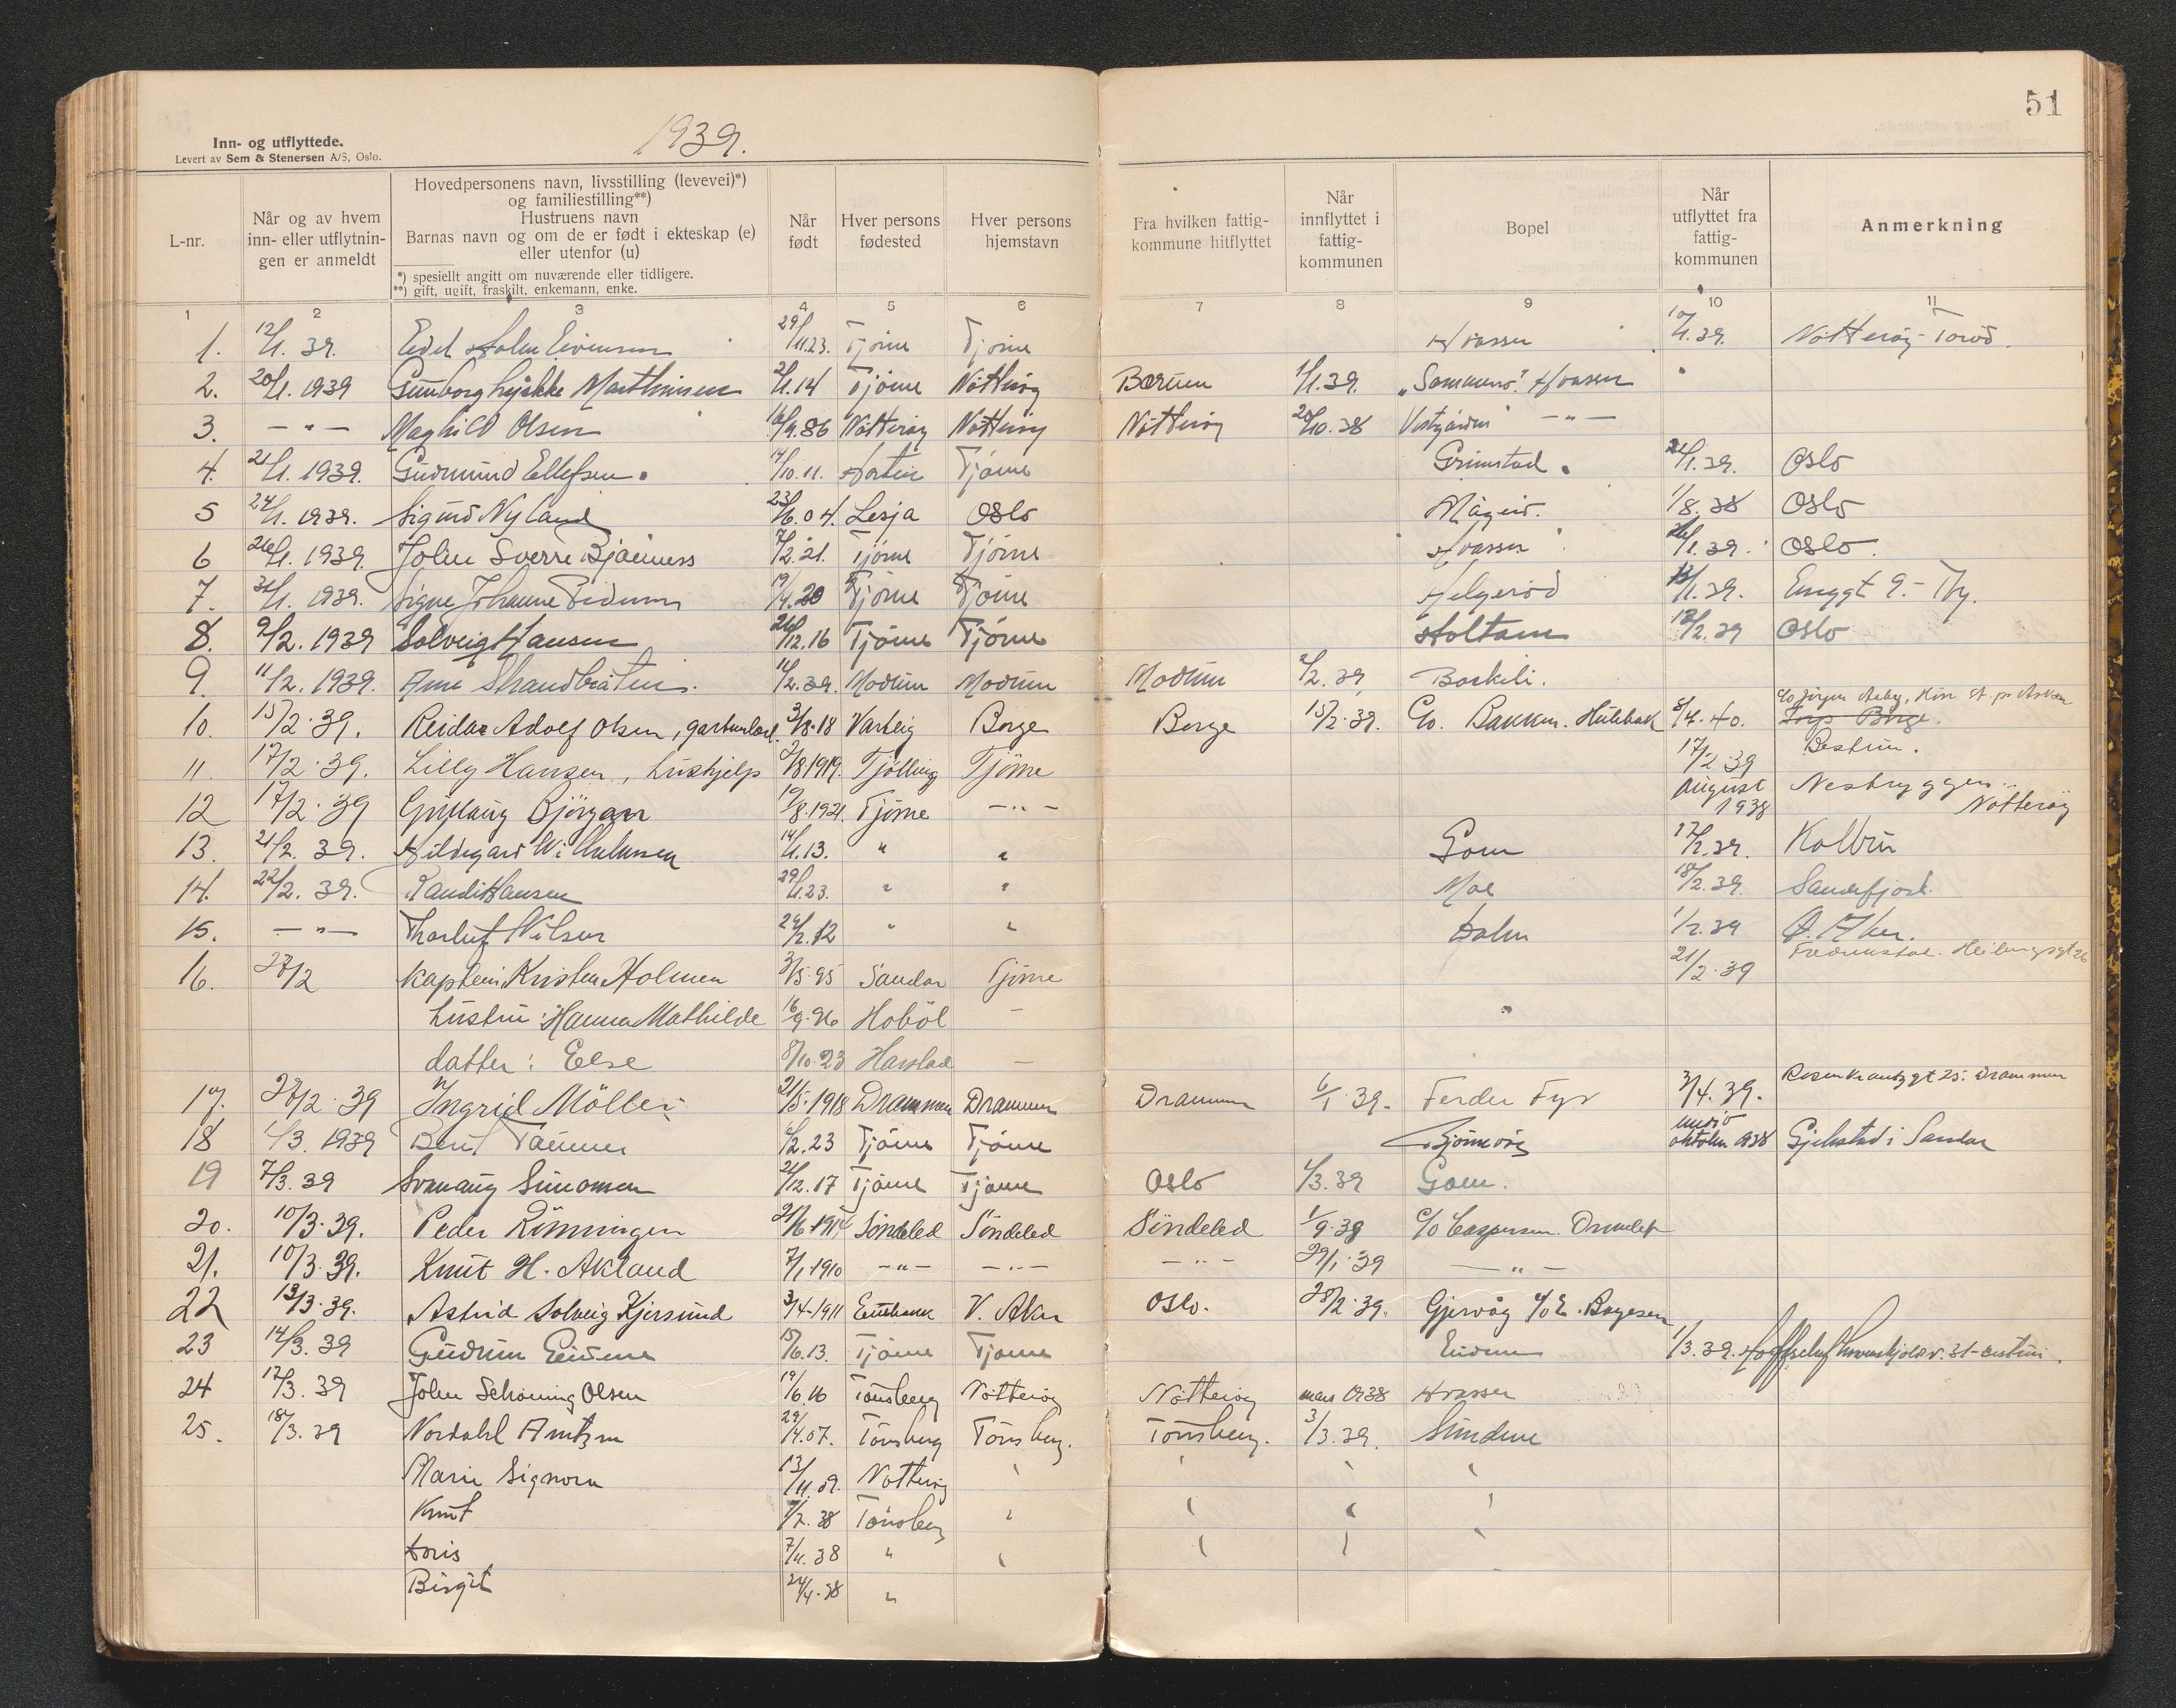 51
Inn- og utflyttede.
Levert av Sem & Stenersen A/S, Oslo.
1939.
L-nr.
Når og av hvem inn- eller utflytnin- gen er anmeldt
Hovedpersonens navn, livsstilling (levevei)*)
og familiestilling**)
Hustruens navn
Barnas navn og om de er født i ekteskap (e)
eller utenfor (u)
*) spesiellt angitt om nuværende eller tidligere.
**) gift, ugift, fraskilt, enkemann, enke.
Når født
Hver persons fødested
Hver persons hjemstavn
Fra hvilken fattig- kommune hitflyttet
Når innflyttet i fattig- kommunen
Bopel
Når utflyttet fra fattig- kommunen
Anmerkning
1 2 3 4 5 6 7 8 9 10 11
1. 12/1. 39. Edel Holm Evensen 29/11.23. Tjöme Tjöme Hvasser 10/1.39. Nötteröy - Torød.
2. 20/1. 1939 Gunborg Marthinsen 2/1.14 Tjöme Nötteröy Bærum 1/1.39. Hvasser
3. — " — Maghild Olsen 16/9.86 Nötteröy Nötteröy Nötteröy 20/10.38 — " —
4. 21/1. 1939. Gudmund Ellefsen. 4/10.11. Horten Tjöme Grimstad. 21/1.39. Oslo
5 24/1. 1939. Sigurd Nyland 23/6.04. Lesja Oslo Mågerö. 1/8.38 Oslo
6 26/1. 1939. John Sverre Bjönness 7/2.21. Tjöme Tjöme Hvasser 26/1.39. Oslo.
7. 31/1. 1939. Signe Johanne 19/4.20 Tjöme Tjöme Helgeröd 13/1.39. 9.- Tbg.
8. 9/2. 1939 Solveig Hansen 26/12.16 Tjöme Tjöme Holtane 12/2.39 Oslo
9. 11/2. 1939. Strandbråten. 11/2.39. Modum Modum Modum 2/2.39 Barkeli.
10. 15/2.39. Reidar Adolf Olsen, 3/8.18 Varteig Borge Borge 15/2.39. c/o. Bakken. Hulebak 8/4.40. Torp Borge.
11. 17/2.39. Lilly Hansen, hushjelp 2/8.1919. Tjölling Tjöme 17/2 39 Bestum.
12 17/2.39 Gudlaug Björgan 19/8.1921. Tjöme — " — August 1938 Nesbryggen Nötteröy
13. 21/2. 39. Hildegard Wilhelmsen 14/1.13. " " Gom 17/2.39. Kolbu
14. 22/2. 39. Randi Hansen 29/1.23. " " Moe 18/2.39. Sandefjord.
15. — " — Thorleif Nilsen 24/2.12 " " Holm 1/2.39 Ö. Aker.
16. 28/2 Kaptein Kristen Holmen 3/5.95 Sandar Tjöme 21/2.39 Fredrikstad.
hustru: Hanna Mathilde 16/9.96 Hoböl —
datter: Else 8/10.23 Harstad —
17. 28/2.39 Ingrid Möller 21/5.1918 Drammen Drammen Drammen 6/1.39. Ferder Fyr 3/4.39. Rosenkrantzgt 25. Drammen
18 1/3. 1939 Berit 6/2.23 Tjöme Tjöme oktober 1938 Gjekstad i Sandar
19 7/3.39 Simonsen 21/12.17 Tjöme Tjöme Oslo 1/3.39 Gom.
20. 10/3.39. Peder Rönningen 21/6.1914 Söndeled Söndeled Söndeled 1/9.38 c/o Caspersen.
21. 10/3.39. Knut H. Akland 7/1 1910 — " — — " — — " — 29/1.39 — " —
22 13/3.39. Astrid Solveig Kjersund 3/4-1911 V. Aker Oslo. 28/2.39. Gjervåg c/o E. Bøgesen
23 14/3.39 Gudrun 15/6.13. Tjöme Tjöme 1/3.39.
24 17/3.39 John Schöning Olsen 19/6.16 Tönsberg Nötteröy Nötteröy mars 1938 Hvasser
25. 18/3.39 Nordahl Arntzen 29/4.07. Tönsberg Tönsberg. Tönsberg. 3/3.39. Sundene
Marie Signora 13/11.09. Nötteröy
Knut 7/2.38 Tönsberg
Doris 7/11.38 "
Birgit 24/4.38 "